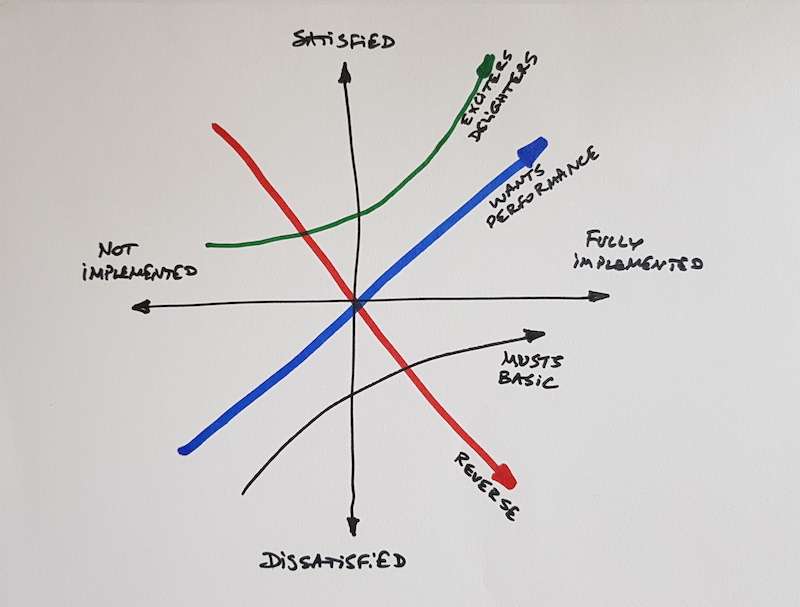 SATISFIED
EXCITERS
DELIGHTERS
WANTS
PERFORMANCE
NOT
IMPLEMENTED
FULLY
IMPLEMENTED
MUSTS
BASIC
REVERSE
DISSATISFIED